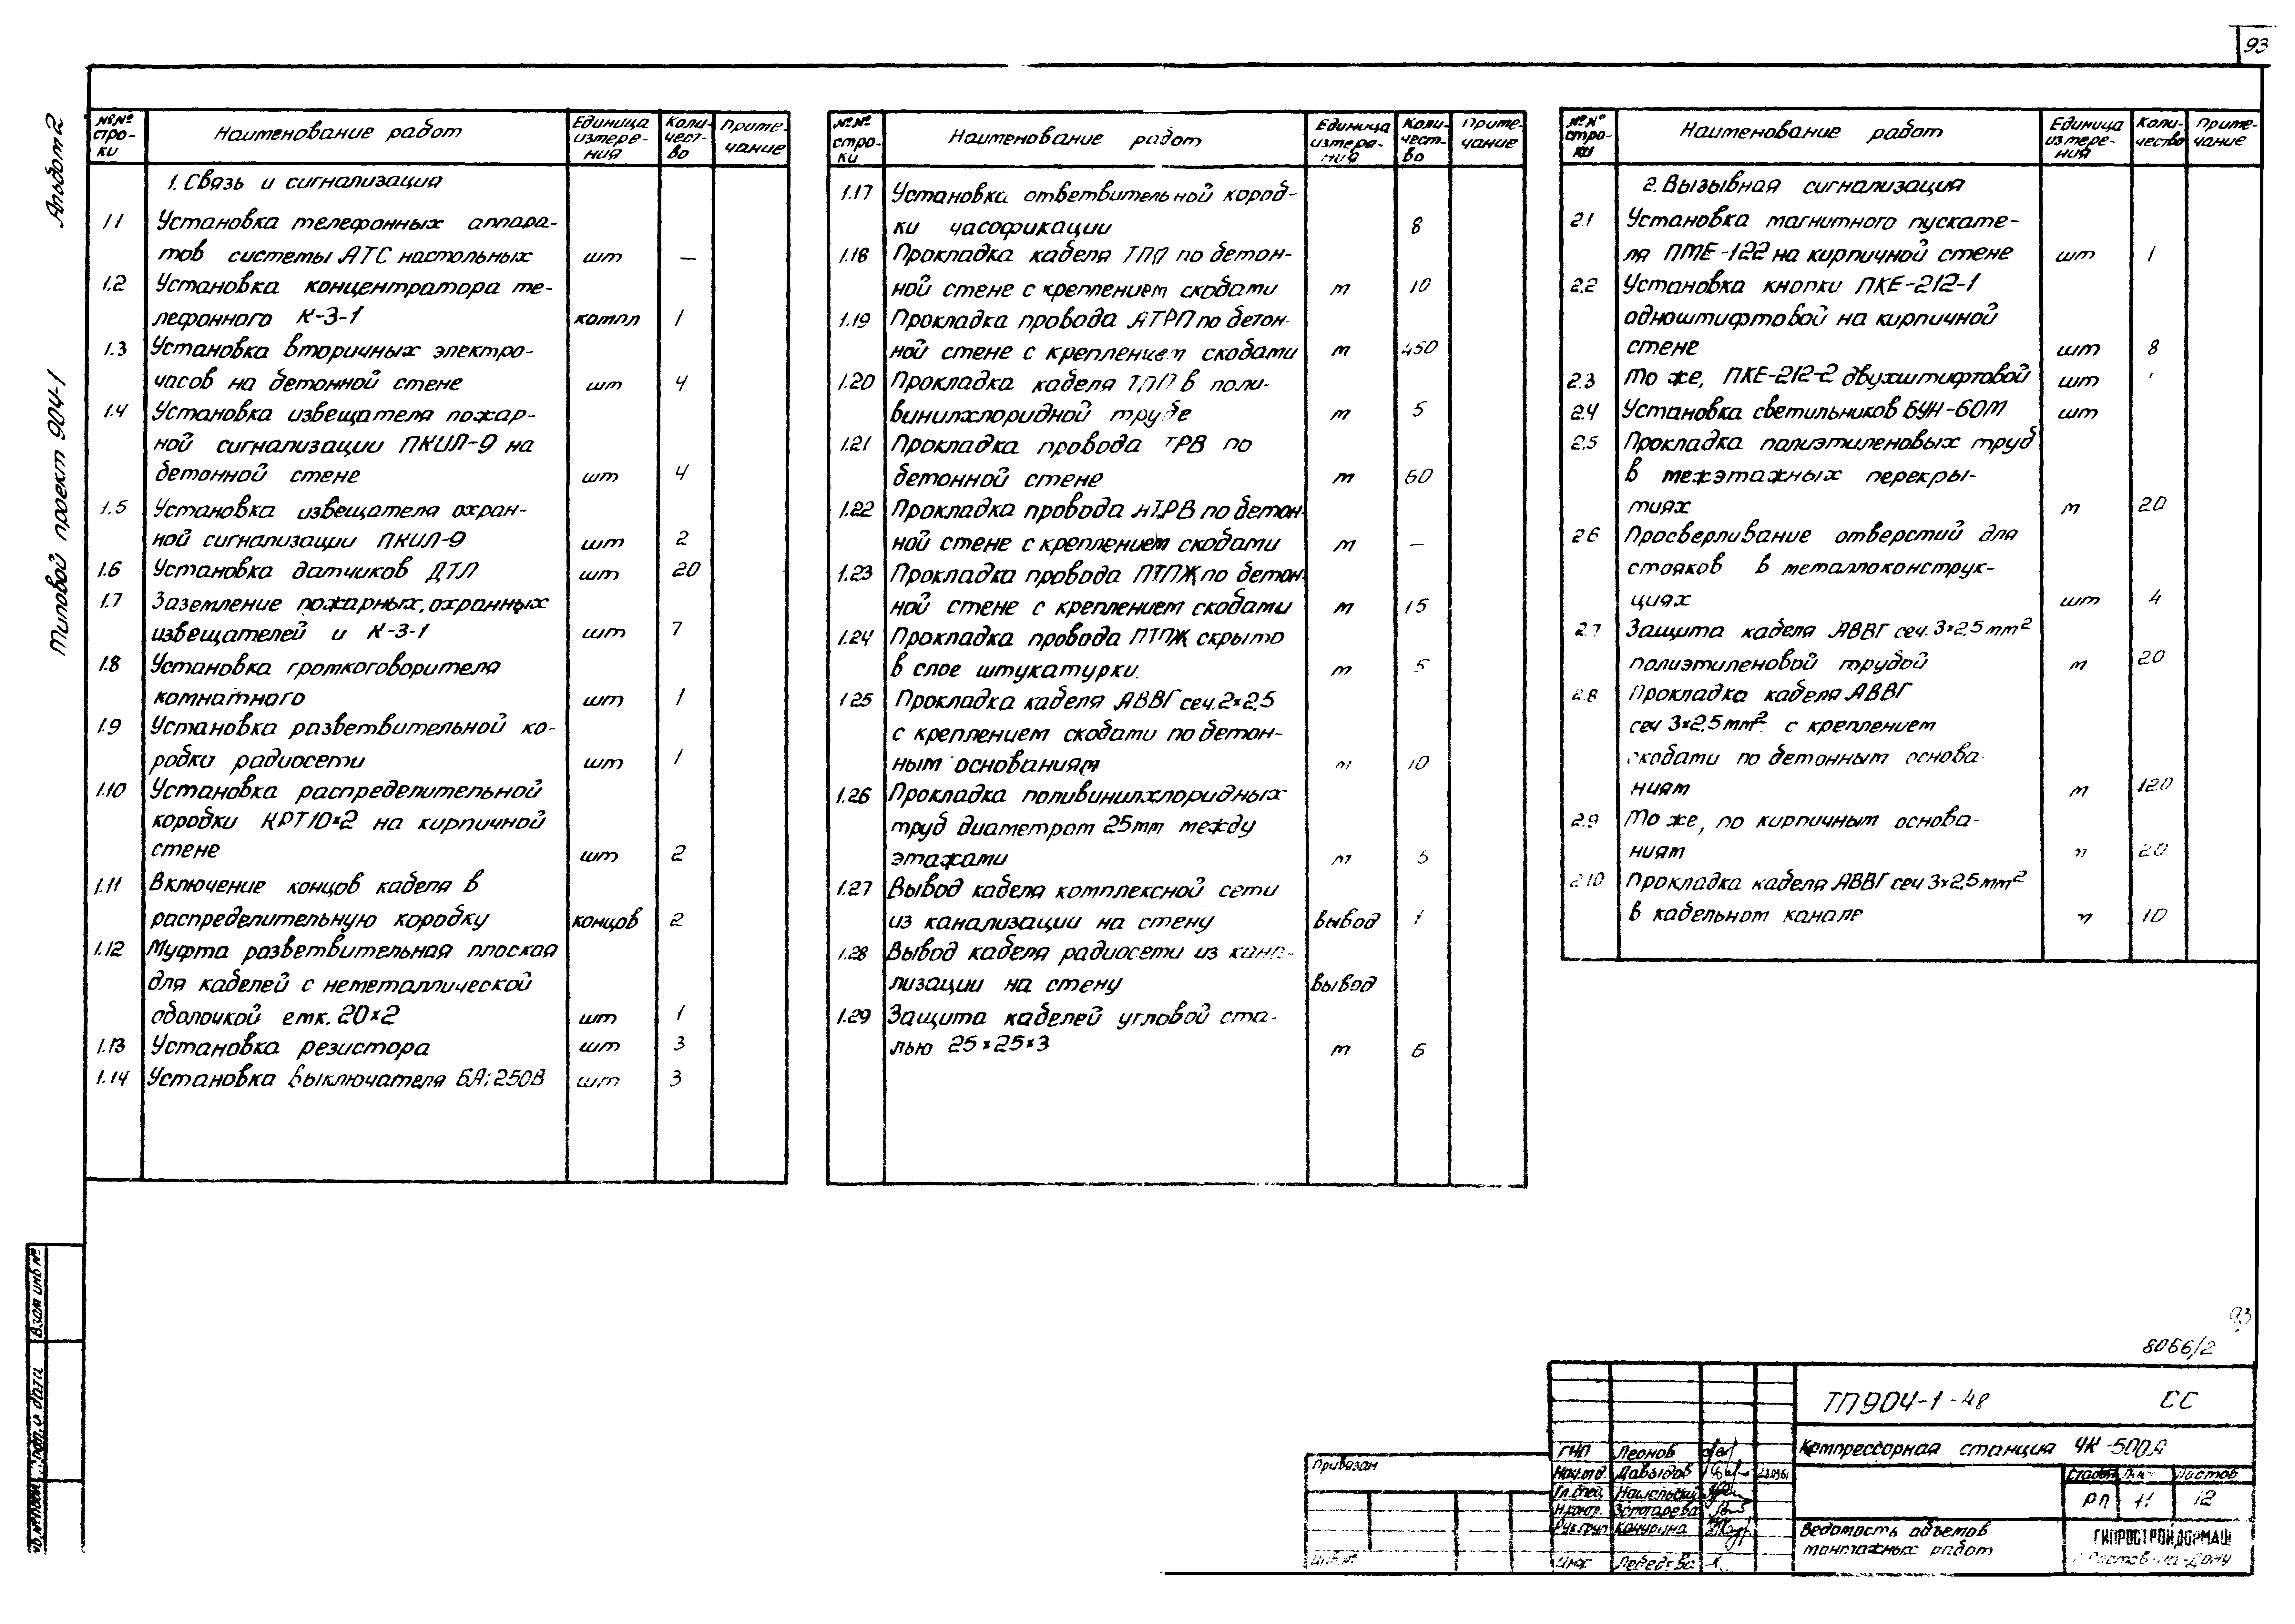 93
Альбом 2
Типовой проект 904-1
№№ стро- ки
Наименование работ
Единица измере- ния
Коли- чест- во
Приме- чание
1. Связь и сигнализация
1.1 Установка телефонных аппара-
тов системы АТС настольных шт —
1.2 Установка концентратора те-
лефонного К-3-1 компл 1
1.3 Установка вторичных электро-
часов на бетонной стене шт 4
1.4 Установка извещателя пожар-
ной сигнализации ПКИЛ-9 на
бетонной стене шт 4
1.5 Установка извещателя охран-
ной сигнализации ПКИЛ-9 шт 2
1.6 Установка датчиков ДТЛ шт 20
1.7 Заземление пожарных, охранных
извещателей и К-3-1 шт 7
1.8 Установка громкоговорителя
комнатного шт 1
1.9 Установка разветвительной ко-
робки радиосети шт 1
1.10 Установка распределительной
коробки КРТ10×2 на кирпичной
стене шт 2
1.11 Включение концов кабеля в
распределительную коробку концов 2
1.12 Муфта разветвительная плоская
для кабелей с неметаллической
оболочкой емк. 20×2 шт 1
1.13 Установка резистора шт 3
1.14 Установка выключателя 6А; 250В шт 3
№№ стро- ки
Наименование работ
Единица измере- ния
Коли- чест- во
Приме- чание
1.17 Установка ответвительной короб-
ки часофикации 8
1.18 Прокладка кабеля ТПП по бетон-
ной стене с креплением скобами м 10
1.19 Прокладка провода АТРП по бетон-
ной стене с креплением скобами м 450
1.20 Прокладка кабеля ТПП в поли-
винилхлоридной трубе м 5
1.21 Прокладка провода ТРВ по
бетонной стене м 60
1.22 Прокладка провода АТРВ по бетон-
ной стене с креплением скобами м —
1.23 Прокладка провода ПТПЖ по бетон-
ной стене с креплением скобами м 15
1.24 Прокладка провода ПТПЖ скрыто
в слое штукатурки. м 5
1.25 Прокладка кабеля АВВГ сеч. 2×2,5
с креплением скобами по бетон-
ным основаниям м 10
1.26 Прокладка поливинилхлоридных
труб диаметром 25мм между
этажами м 5
1.27 Вывод кабеля комплексной сети
из канализации на стену вывод 1
1.28 Вывод кабеля радиосети из кана-
лизации на стену вывод
1.29 Защита кабелей угловой ста-
лью 25×25×3 м 6
№№ стро- ки
Наименование работ
Единица измере- ния
Коли- чество
Приме- чание
2. Вызывная сигнализация
2.1 Установка магнитного пускате-
ля ПМЕ-122 на кирпичной стене шт 1
2.2 Установка кнопки ПКЕ-212-1
одноштифтовой на кирпичной
стене шт 8
2.3 То же, ПКЕ-212-2 двухштифтовой шт
2.4 Установка светильников БУН-60М шт
2.5 Прокладка полиэтиленовых труб
в межэтажных перекры-
тиях м 20
2.6 Просверливание отверстий для
стояков в металлоконструк-
циях шт 4
2.7 Защита кабеля АВВГ сеч. 3×2,5мм²
полиэтиленовой трубой м 20
2.8 Прокладка кабеля АВВГ
сеч 3×2,5мм² с креплением
скобами по бетонным основа-
ниям м 120
2.9 То же, по кирпичным основа-
ниям м 20
2.10 Прокладка кабеля АВВГ сеч 3×2,5мм²
в кабельном канале м 10
93
8066/2
ТП904-1-48 СС
Компрессорная станция 4К-500А
Стадия Лист Листов
РП 11 12
Ведомость объемов
монтажных работ
ГИПРОСТРОЙДОРМАШ
г. Ростов-на-Дону
ГИП Леонов
Нач.отд. Давыдов
Гл.спец.
Н.контр. Золотарева
Рук.груп
Инж Лебедева
Привязан
Инв №
Взам инв №
Подп. и дата